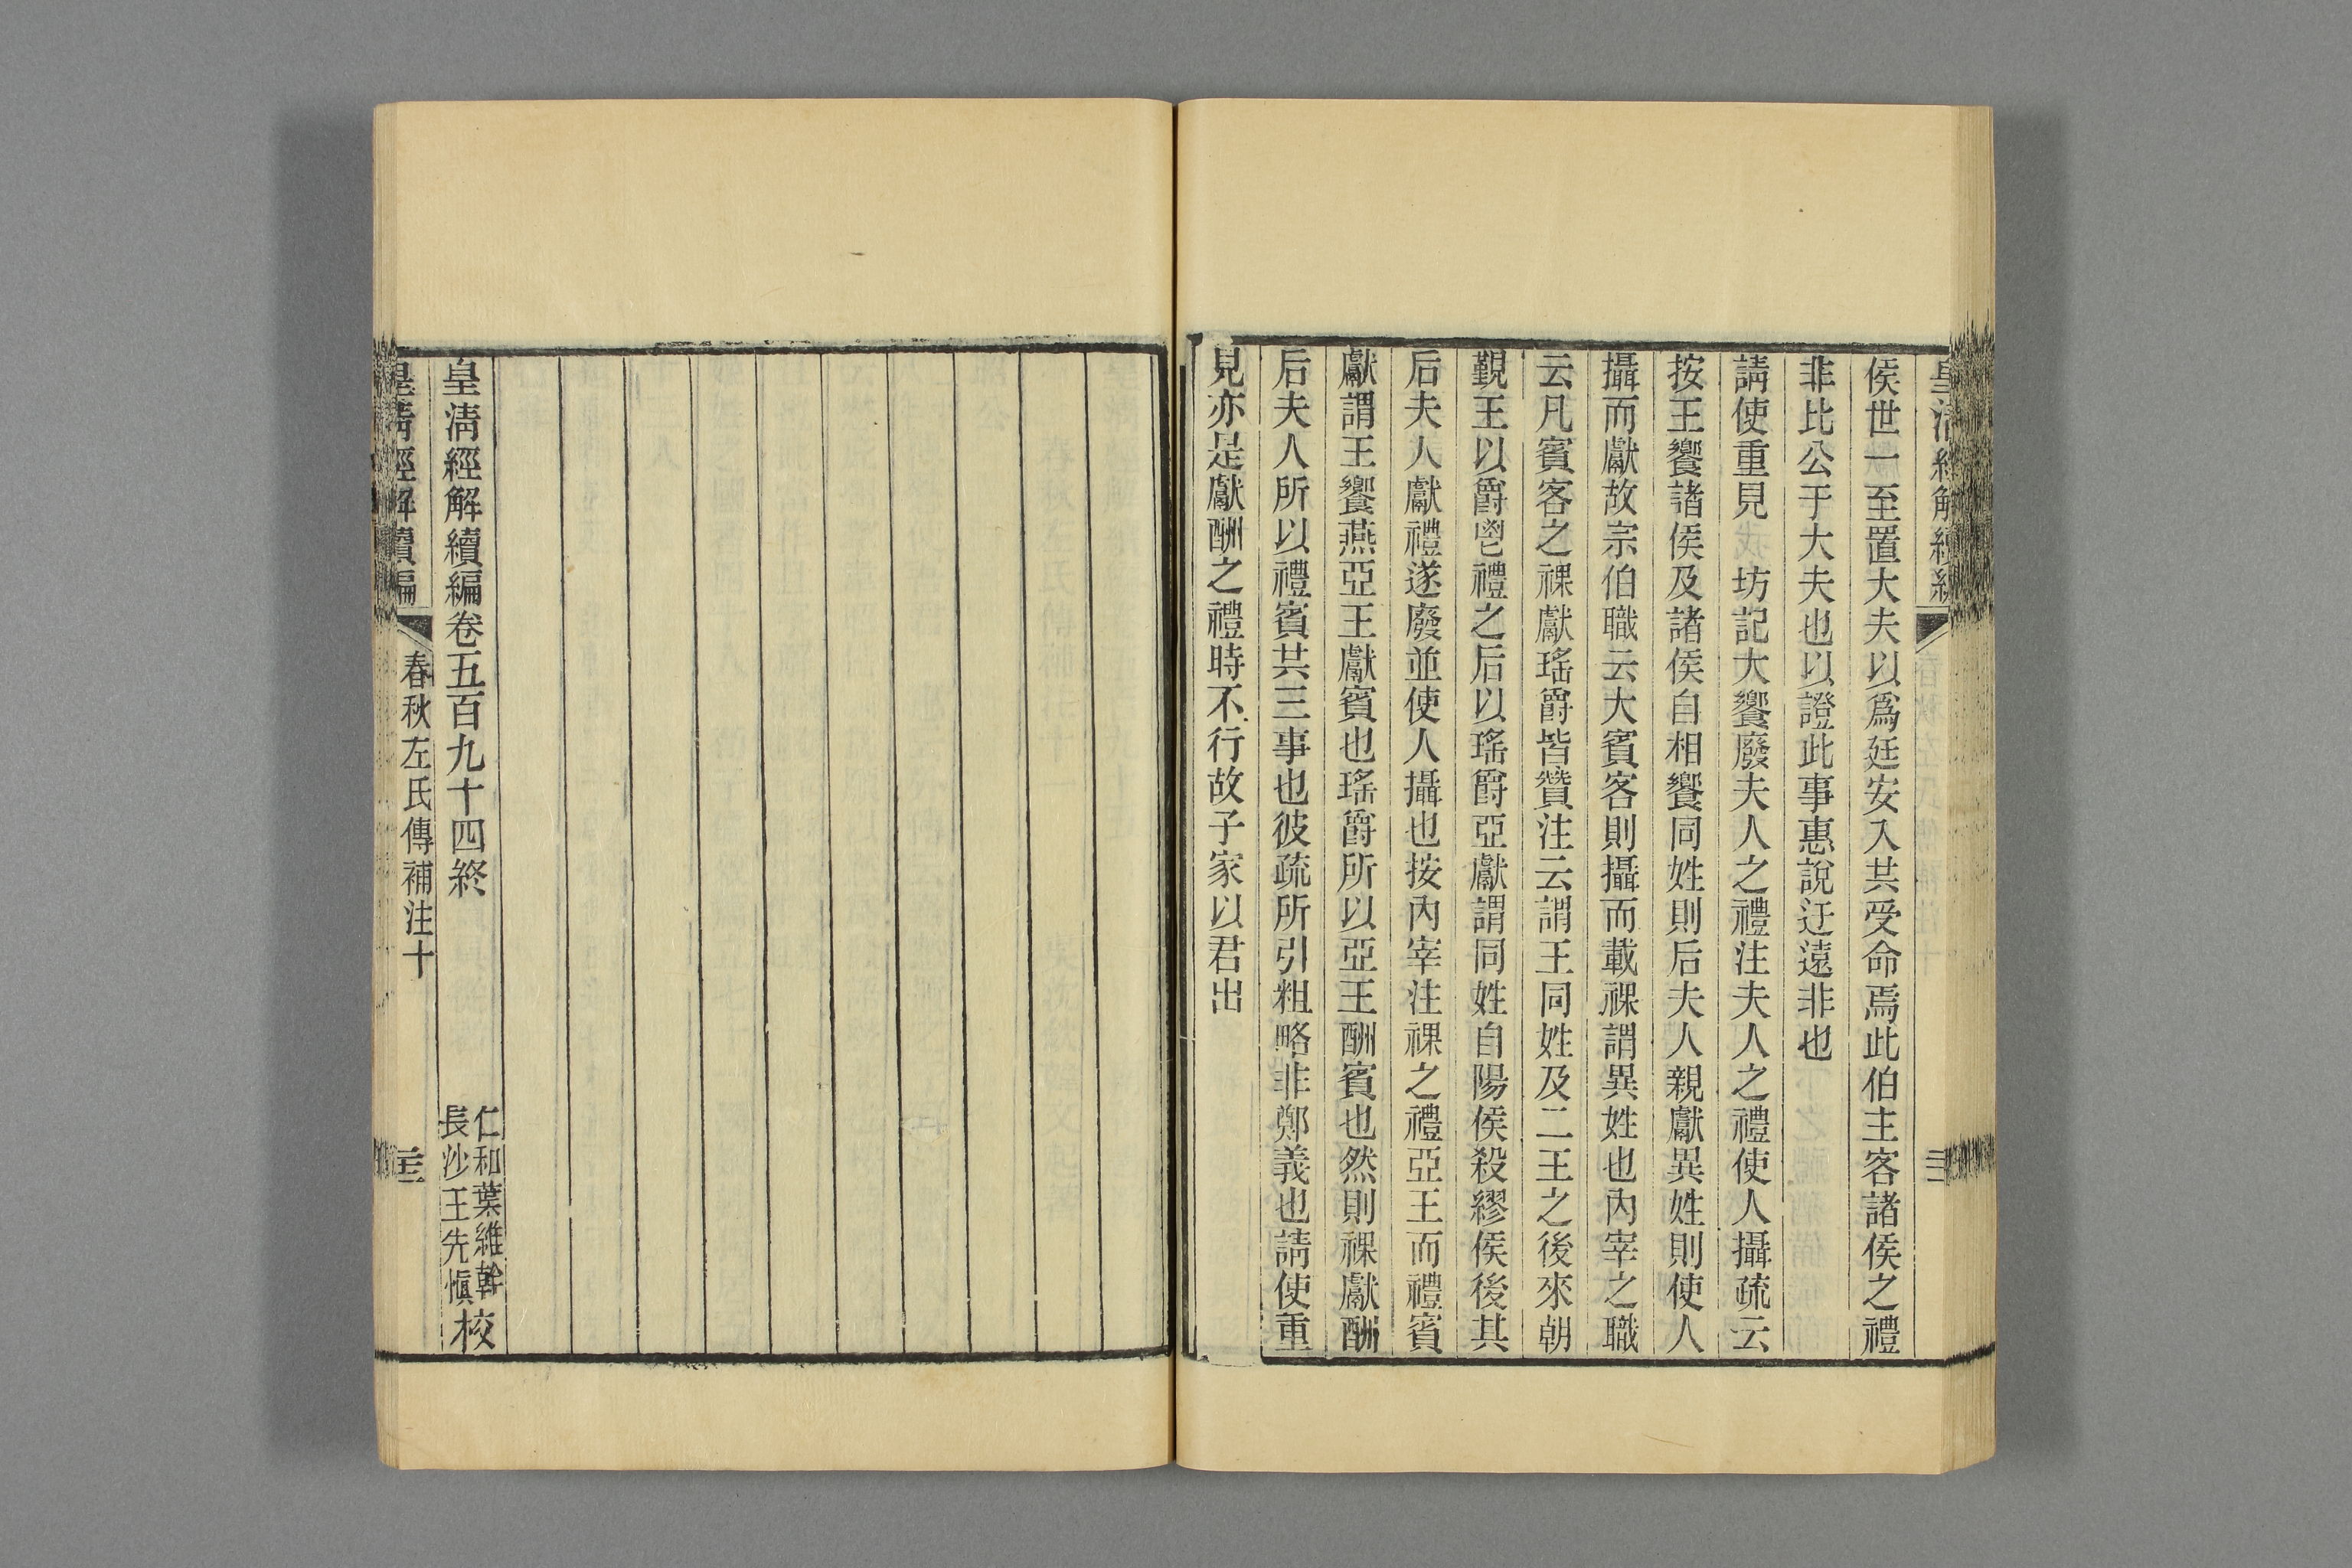 侯世一至置大夫以爲廷安入共受命焉此伯主客諸侯之禮
非比公于大夫也以證此事惠說迂遠非也
請使重見 坊記大饗廢夫人之禮注夫人之禮使人攝疏云
按王饗諸侯及諸侯自相饗同姓則后夫人親獻異姓則使人
攝而獻故宗伯職云大賓客則攝而載祼謂異姓也內宰之職
云凡賓客之祼獻瑤爵皆贊注云謂王同姓及二王之後來朝
覲王以爵鬯禮之后以瑤爵亞獻謂同姓自陽侯殺繆侯後其
后夫人獻禮遂廢並使人攝也按內宰注祼之禮亞王而禮賓
獻謂王饗燕亞王獻賓也瑤爵所以亞王酬賓也然則祼獻酬
后夫人所以禮賓共三事也彼疏所引粗略非鄭義也請使重
見亦是獻酬之禮時不行故子家以君出
皇清經解續編卷五百九十四終
仁和葉維幹
長沙王先愼
校
皇清經解續編
春秋左氏傳補注十